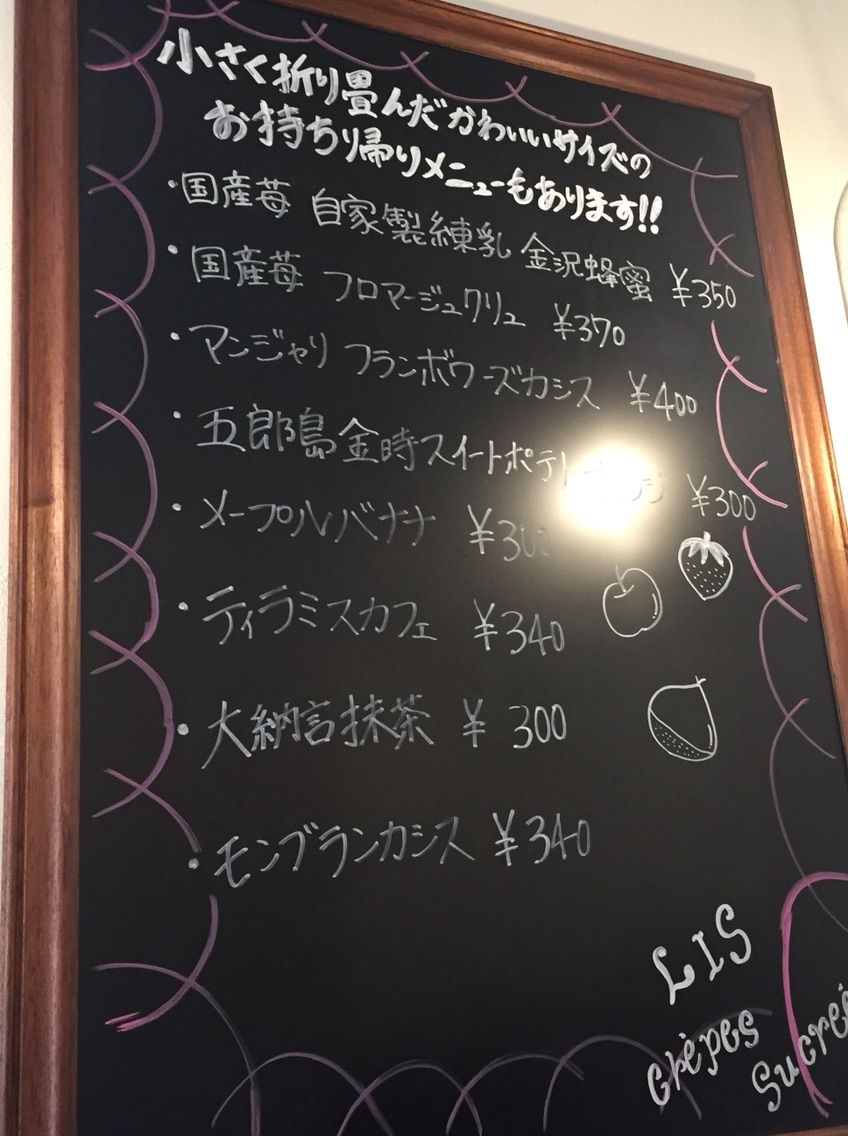 小さく折り畳んだかわいいサイズの
お持ち帰りメニューもあります!!
・国産苺 自家製練乳 金沢蜂蜜 ¥350
・国産苺 フロマージュクリュ ¥370
・マンジャリ フランボワーズカシス ¥400
・五郎島金時スイートポテト ¥300
・メープルバナナ
・ティラミスカフェ ¥340
・大納言抹茶 ¥300
・モンブランカシス ¥340
LIS
crêpes
sucreé